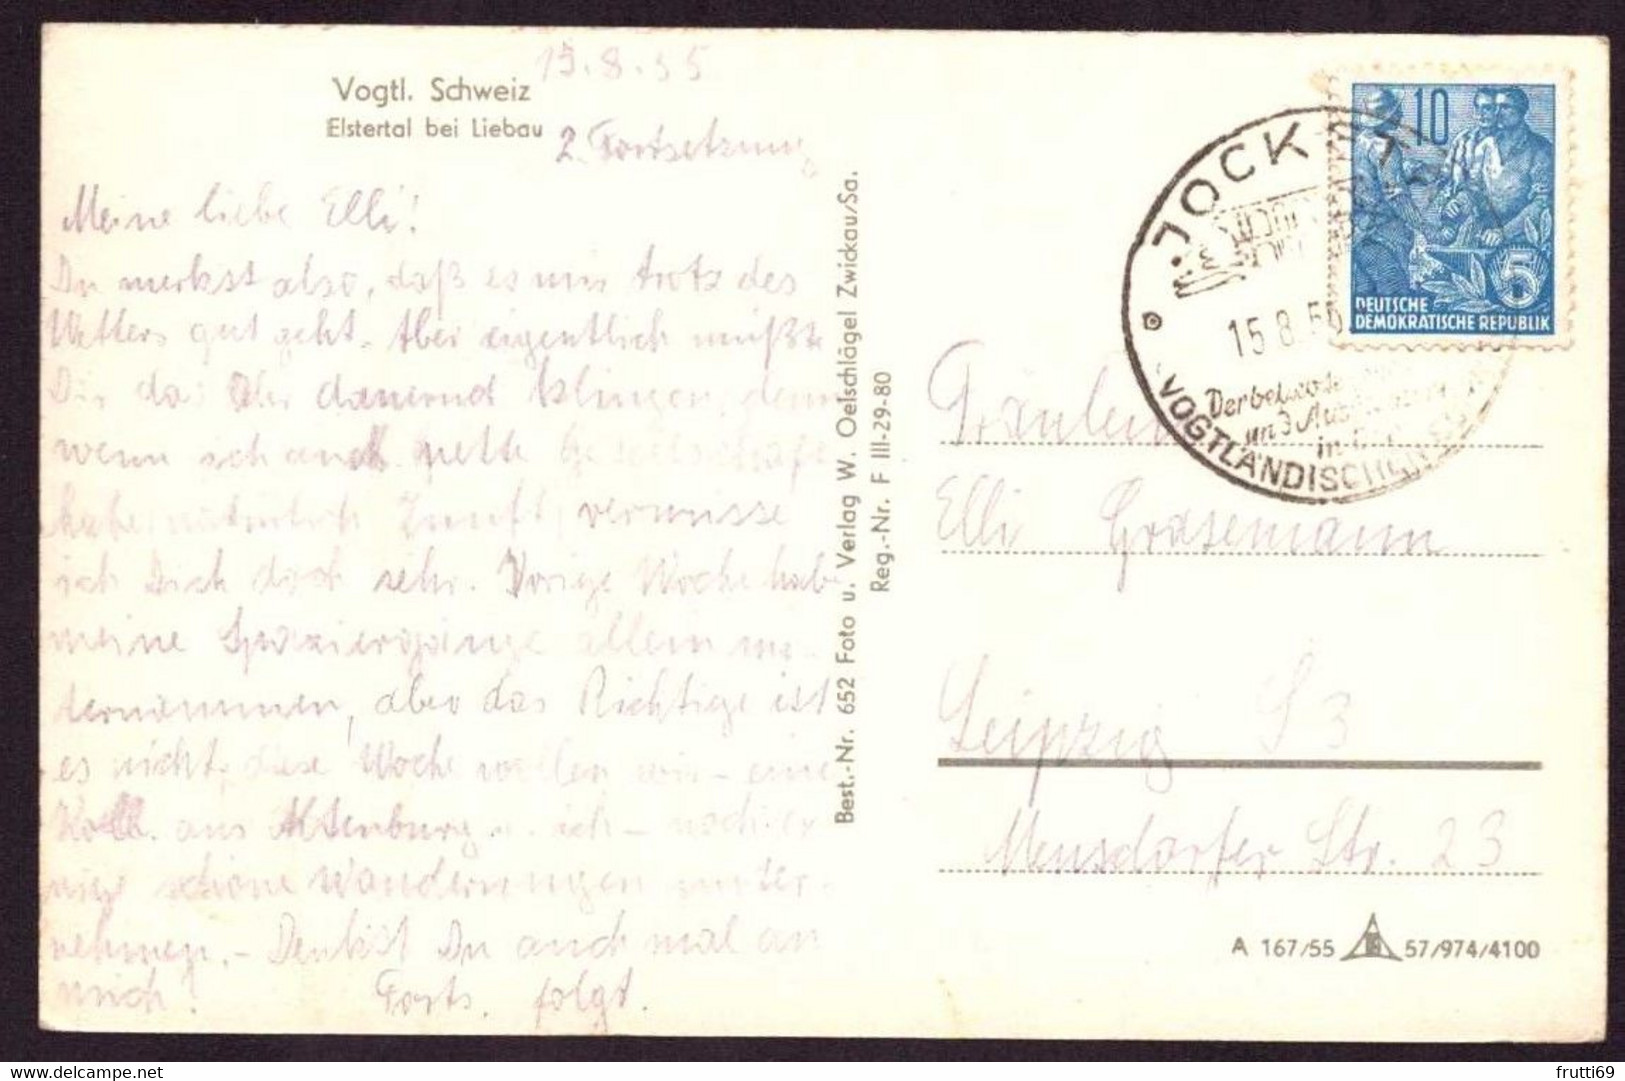 15.8.55
Vogtl. Schweiz
Elstertal bei Liebau
2. Fortsetzung
Meine liebe Elli!
Du merkst also, daß es mir trotz des
Wetters gut geht. Aber eigentlich müßten
Dir da die dauernd klingen, denn
wenn ich auch nette Gesellschaft
habe, natürlich Zunft, vermisse
ich Dich doch sehr. Vorige Woche hab
meine Spaziergänge allein un-
ternommen, aber das Richtige ist
es nicht, diese Woche wollen wir – eine
Koll. aus Altenburg u. ich – noch
schöne Wanderungen unter-
nehmen. – Denkst Du auch mal an
mich? Forts. folgt.
Best.-Nr. 652 Foto u. Verlag W. Oelschlägel Zwickau/Sa.
Reg.-Nr. F III-29-80
JOCKETA
15.8.55
VOGTLÄNDISCHEN
10
5
DEUTSCHE
DEMOKRATISCHE REPUBLIK
Fräulein
Elli Grasemann
Leipzig S 3
Mensdorfer Str. 23
A 167/55 57/974/4100
frutti69
www.delcampe.net